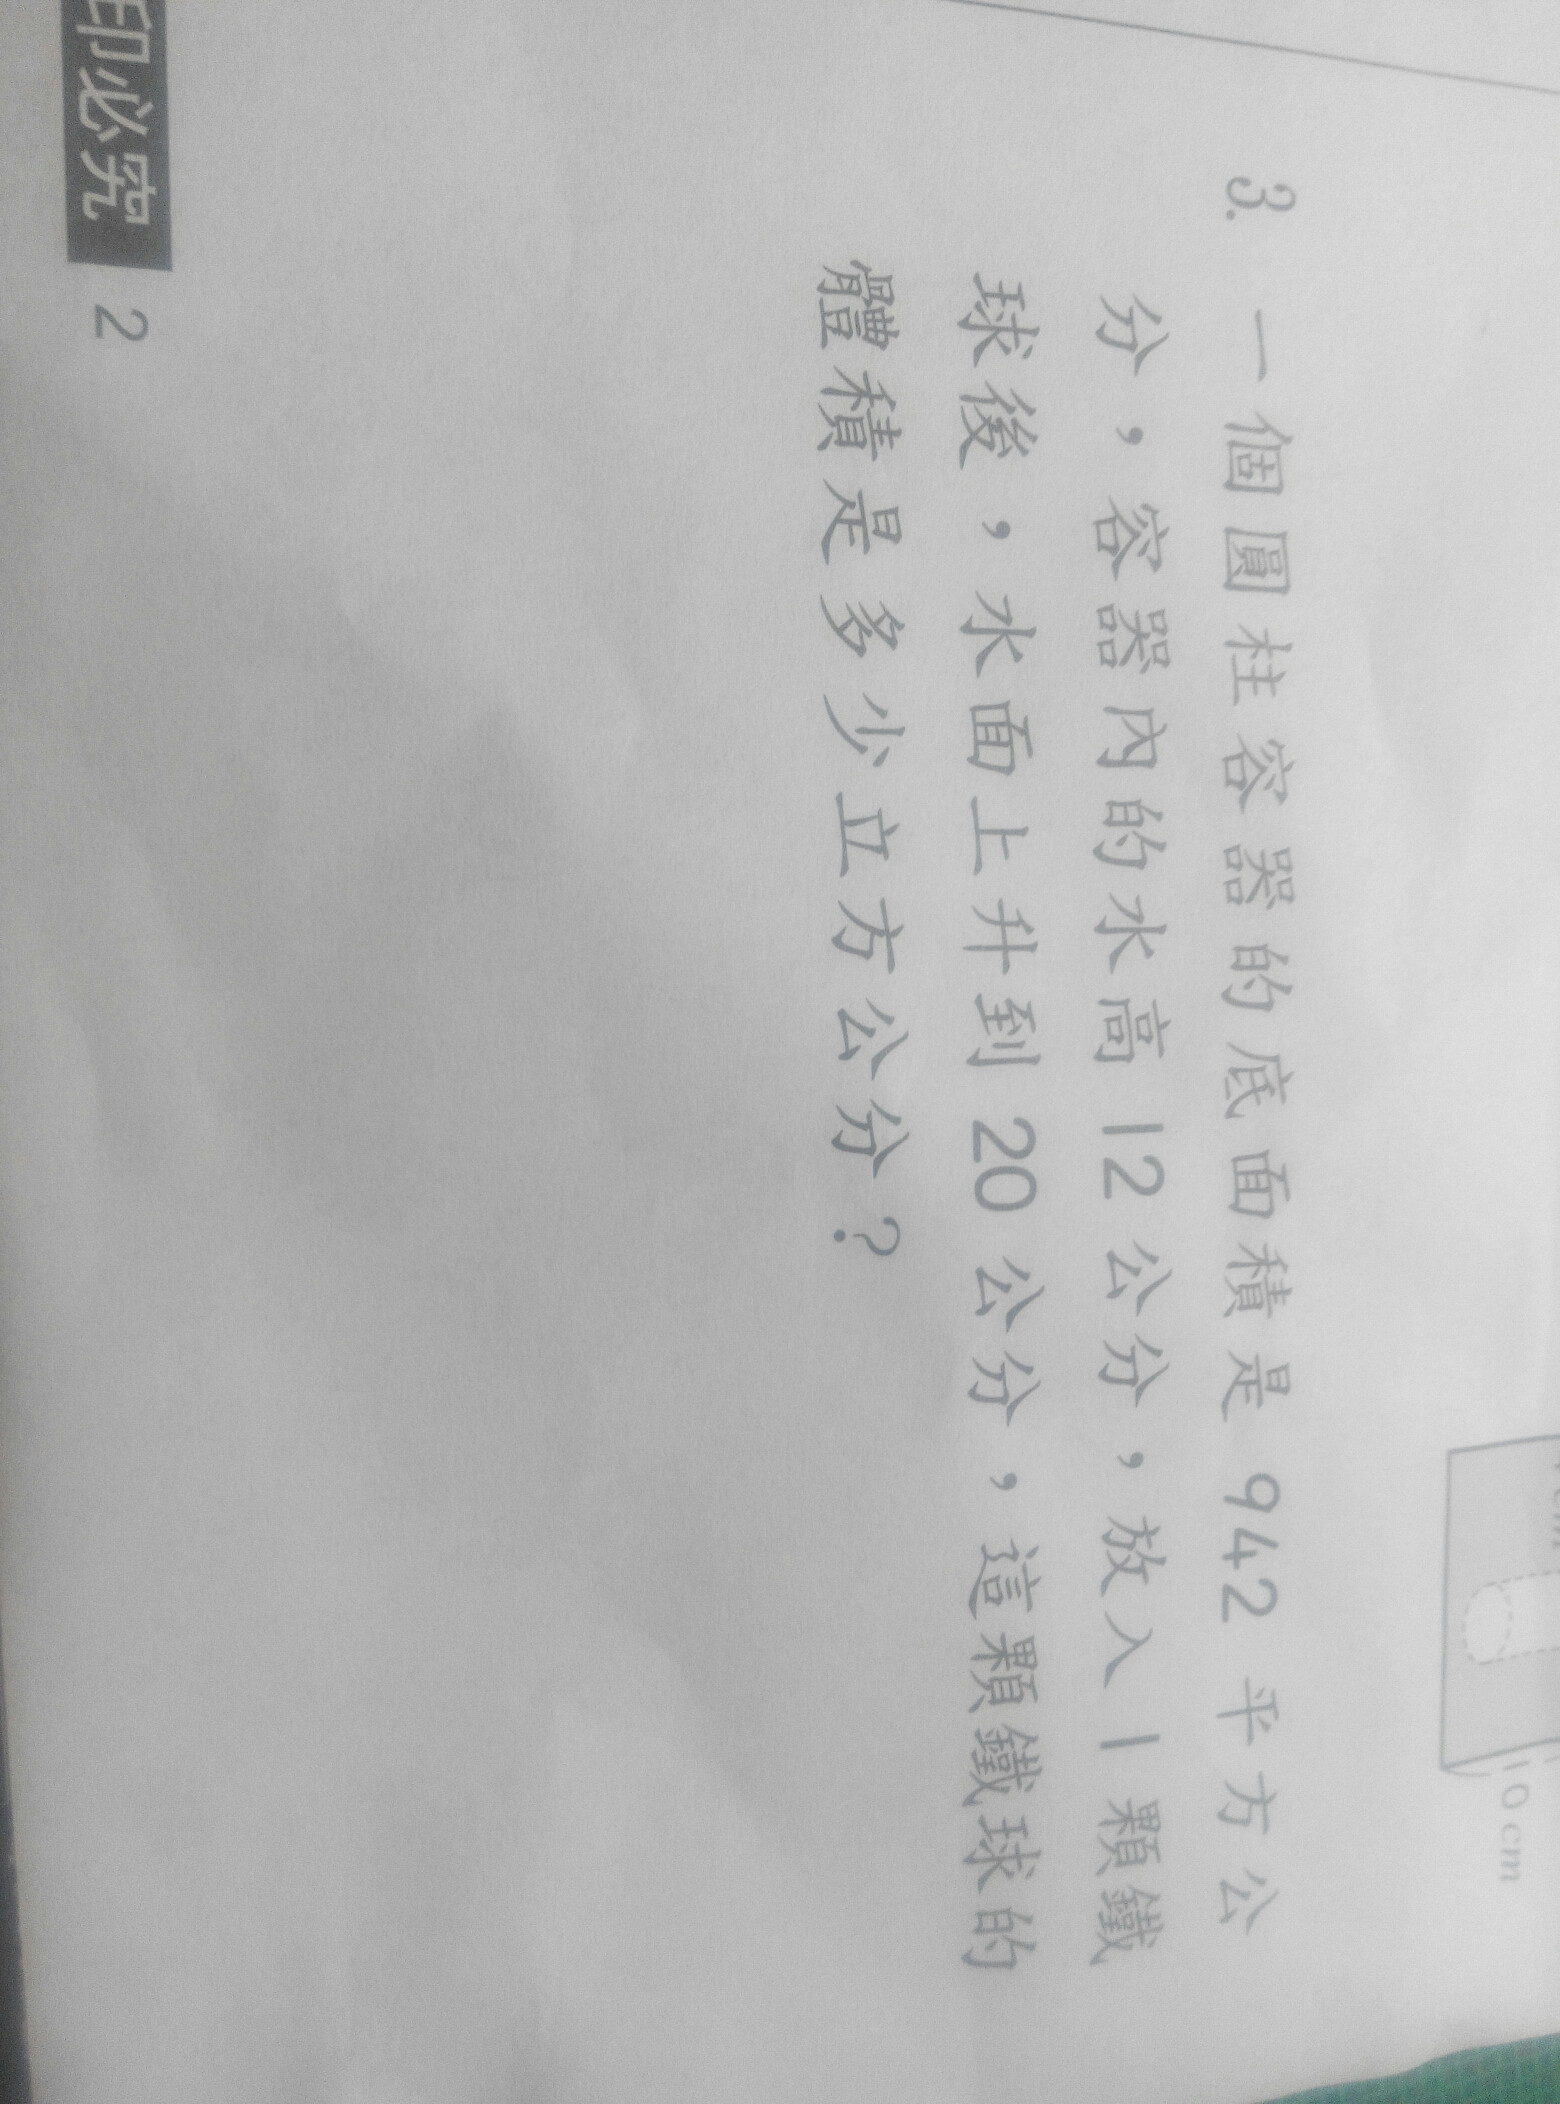 10 cm
3. 一個圓柱容器的底面積是 942 平方公
分，容器內的水高 12 公分，放入 1 顆鐵
球後，水面上升到 20 公分，這顆鐵球的
體積是多少立方公分？
印必究 2